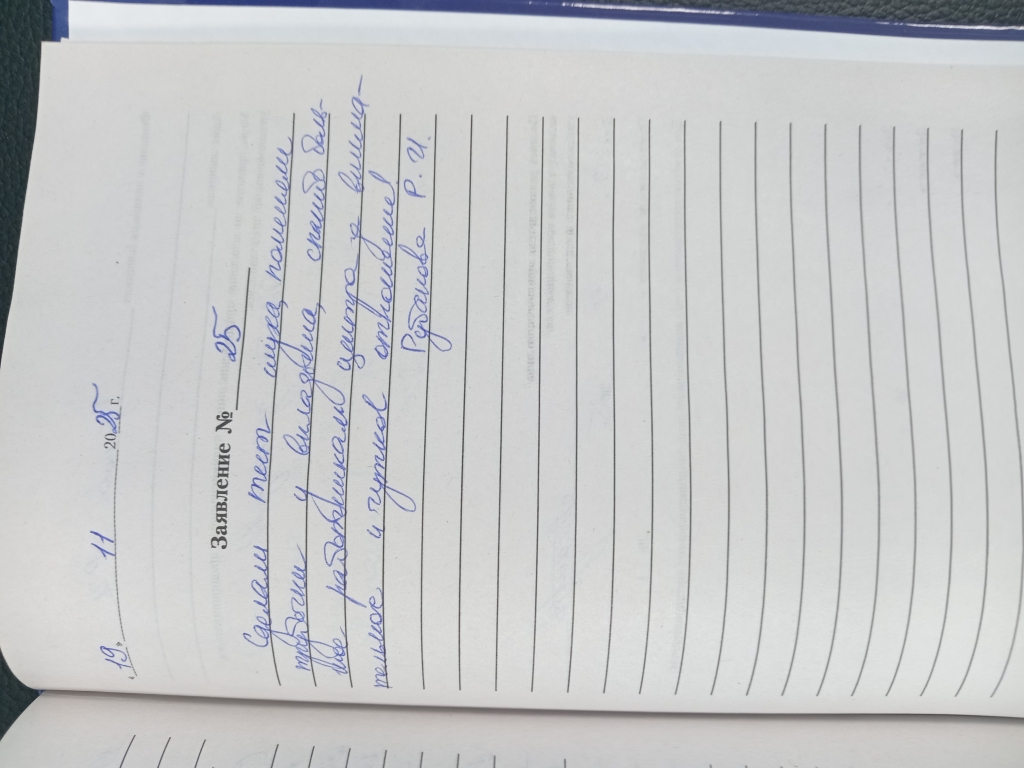 19. 11 2025 г.
Заявление № 25
Сделали тест слуха, поменяли
трубочки у вкладыша, спасибо боль-
шое работникам центра за внима-
тельное и чуткое отношение!
Р. И.